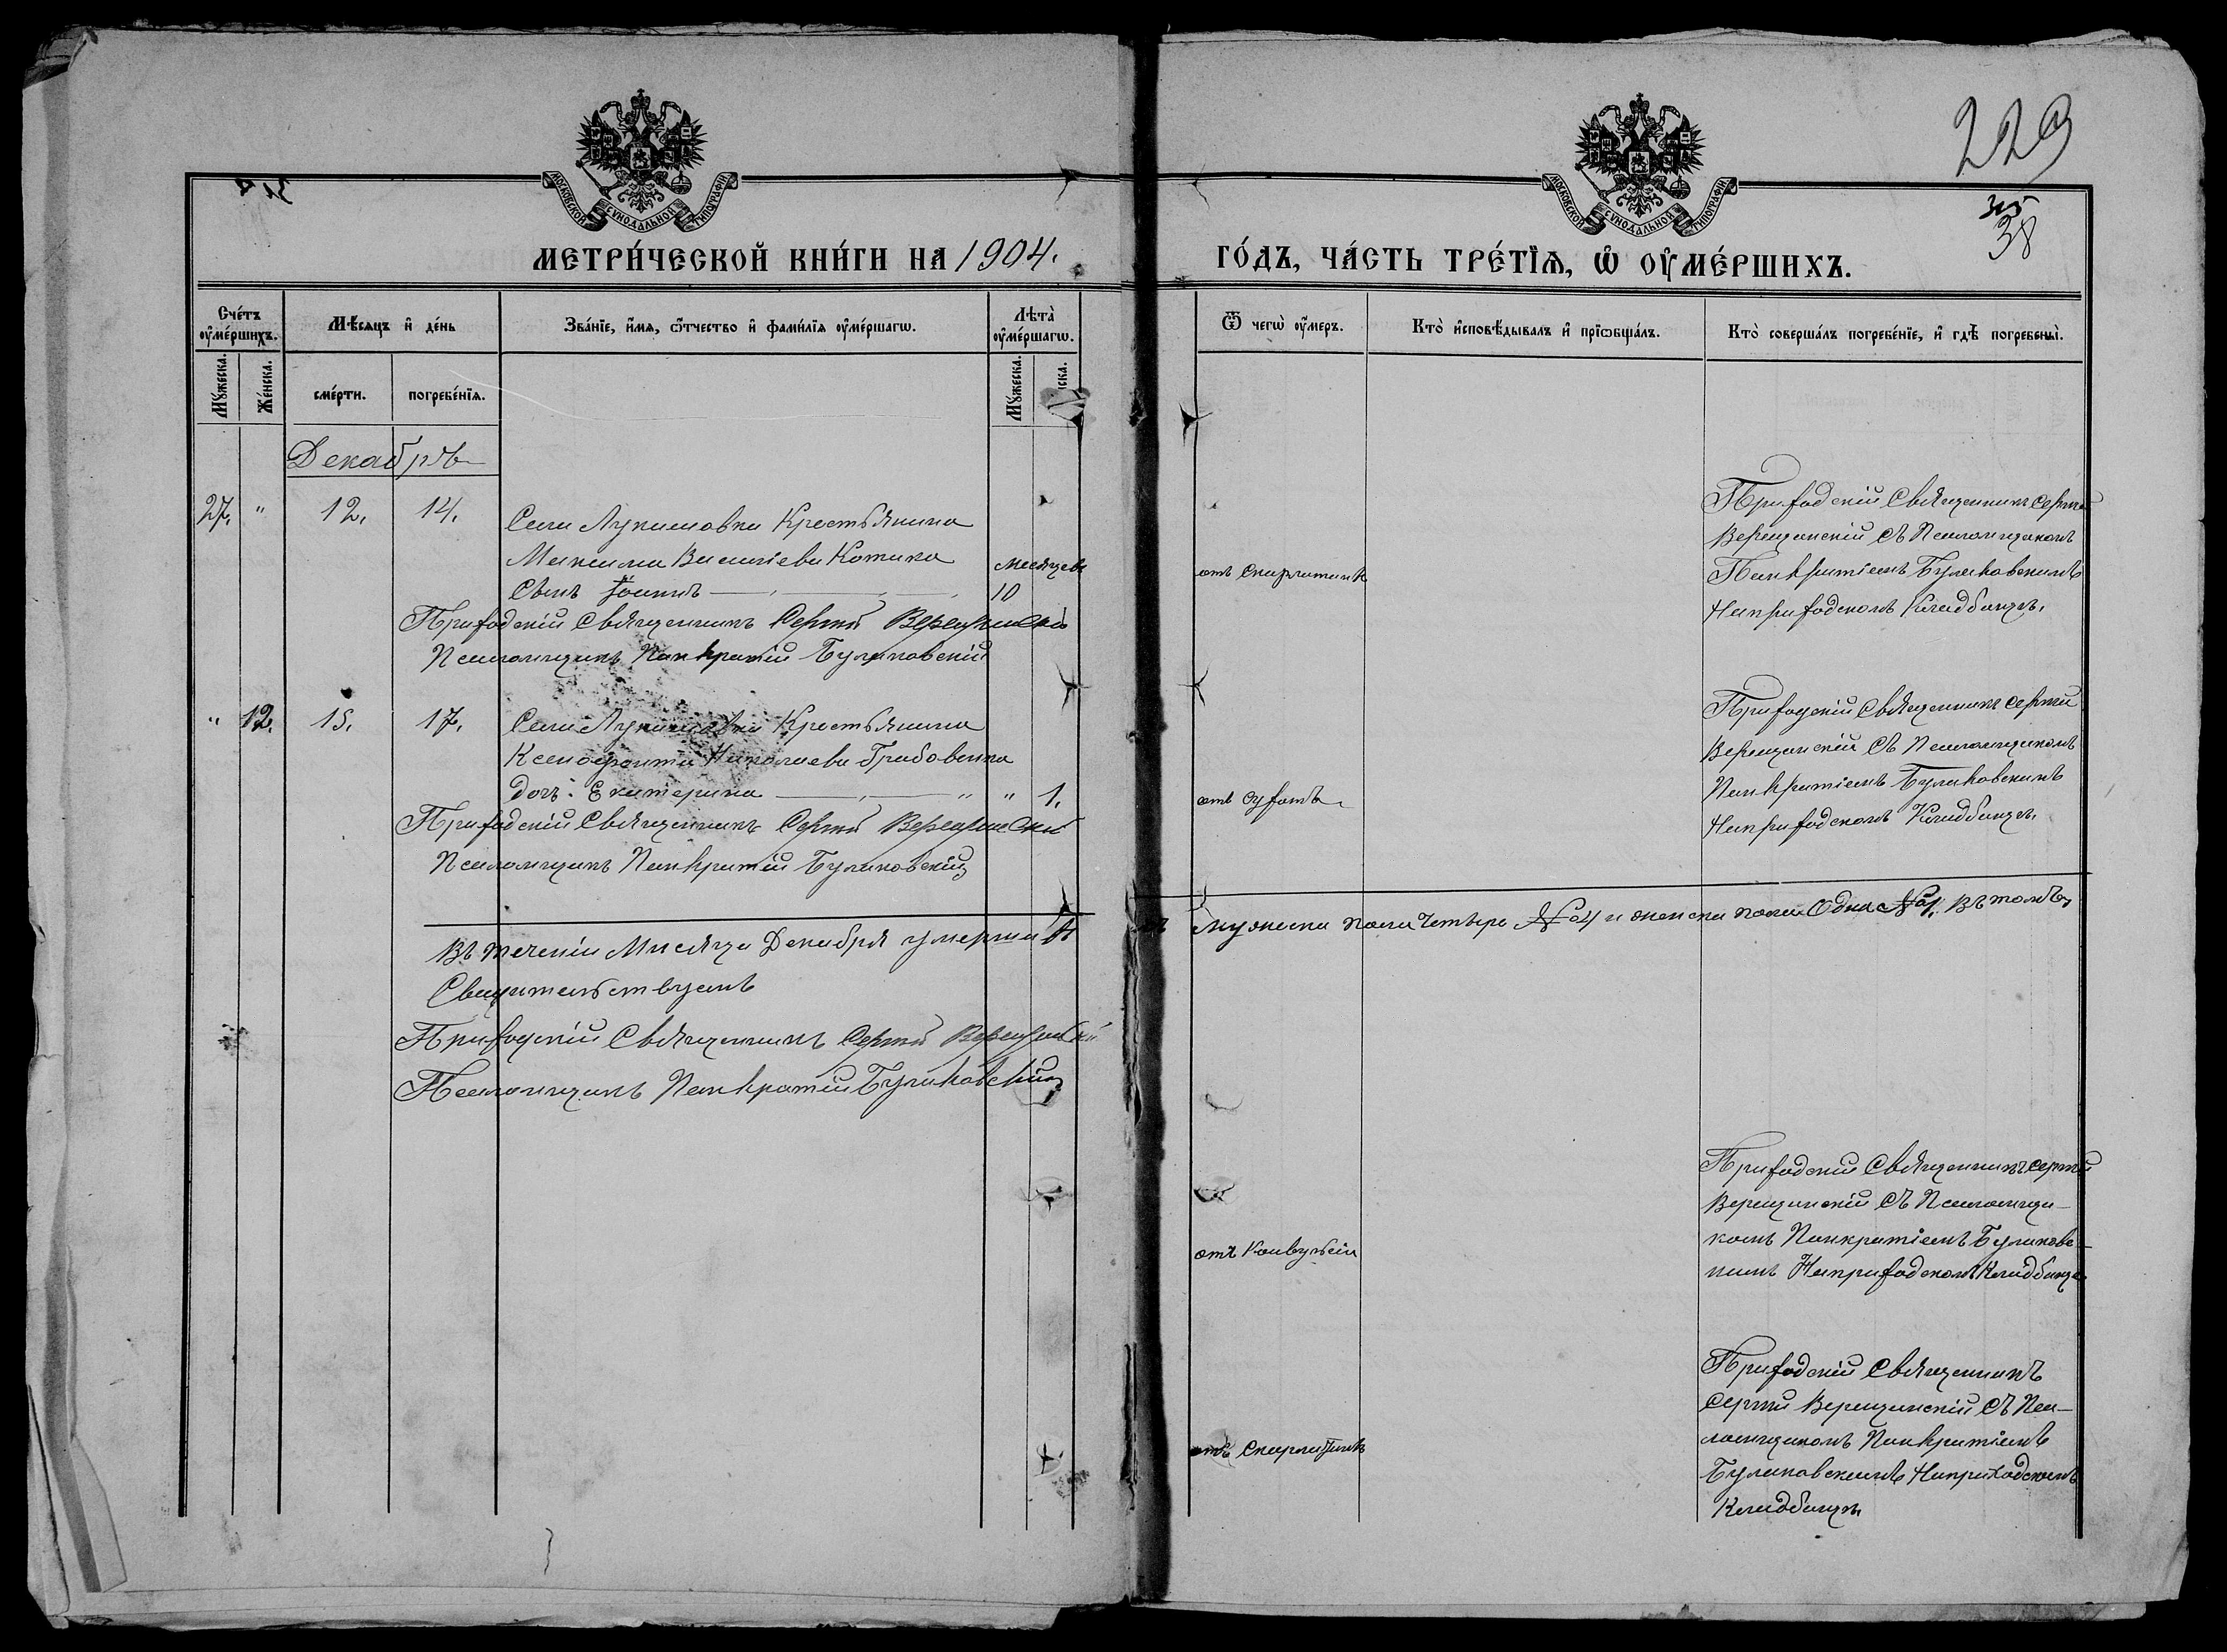 229
315
38
МОСКОВСКОЙ СѴНОДАЛЬНОЙ ТИПОГРАФІИ
МОСКОВСКОЙ СѴНОДАЛЬНОЙ ТИПОГРАФІИ
МЕТРИ́ЧЕСКОЙ КНИ́ГИ НА 1904.
ГО́ДЪ, ЧА́СТЬ ТРЕ́ТІѦ, Ѡ ОУ҆МЕ́РШИХЪ.
Сче́тъ оу҆ме́ршихъ.
Мѣ́сяцъ и҆ де́нь
Зва́нїе, и҆́мя, ѻ҆́тчество и҆ фами́лїя оу҆ме́ршагѡ.
Лѣ́та оу҆ме́ршагѡ.
Ѿ чегѡ̀ оу҆́меръ.
Кто̀ и҆сповѣ́дывалъ и҆ прїѡбща́лъ.
Кто̀ соверша́лъ погребе́нїе, и҆ гдѣ̀ погребены̀.
Мꙋ́жеска.
Же́нска.
сме́рти.
погребе́нїя.
Мꙋ́жеска.
ска.
Декабрь
27. " 12. 14.
Села Лукашовки Крестьянина
Максима Василіева Котика
Сынъ Іоаннъ
месяцевъ
10
отъ Скарлатины
Приходскій Священникъ Сергій
Верещинскій съ Псаломщикомъ
Панкратіемъ Булаковскимъ
На приходскомъ Кладбищѣ.
Приходскій Священникъ Сергій Верещинскій
Псаломщикъ Панкратій Булаковскій
" 12. 15. 17.
Села Лукашовки Крестьянина
Ксенофонта Николаева Грабовенка
Дочь: Екатерина " " 1.
отъ сухотъ
Приходскій Священникъ Сергій
Верещинскій съ Псаломщикомъ
Панкратіемъ Булаковскимъ
На приходскомъ Кладбищѣ.
Приходскій Священникъ Сергій Верещинскій
Псаломщикъ Панкратій Булаковскій
Въ теченіи Мисяца Декабря умерши
мужеска пола Четыре № 4 и женска пола Одна № 1. Въ томъ
Свидительствуемъ
Приходскій Священникъ Сергій Верещинскій
Псаломщикъ Панкратій Булаковскій
отъ Конвульсіи
Приходскій Священникъ Сергій
Верещинскій съ Псаломщи-
комъ Панкратіемъ Булаковс-
кимъ На приходскомъ Кладбище
отъ Скарлатины
Приходскій Священникъ
Сергій Верещинскій съ Пса-
ломщикомъ Панкратіемъ
Булаковскимъ На приходскомъ
Кладбищѣ